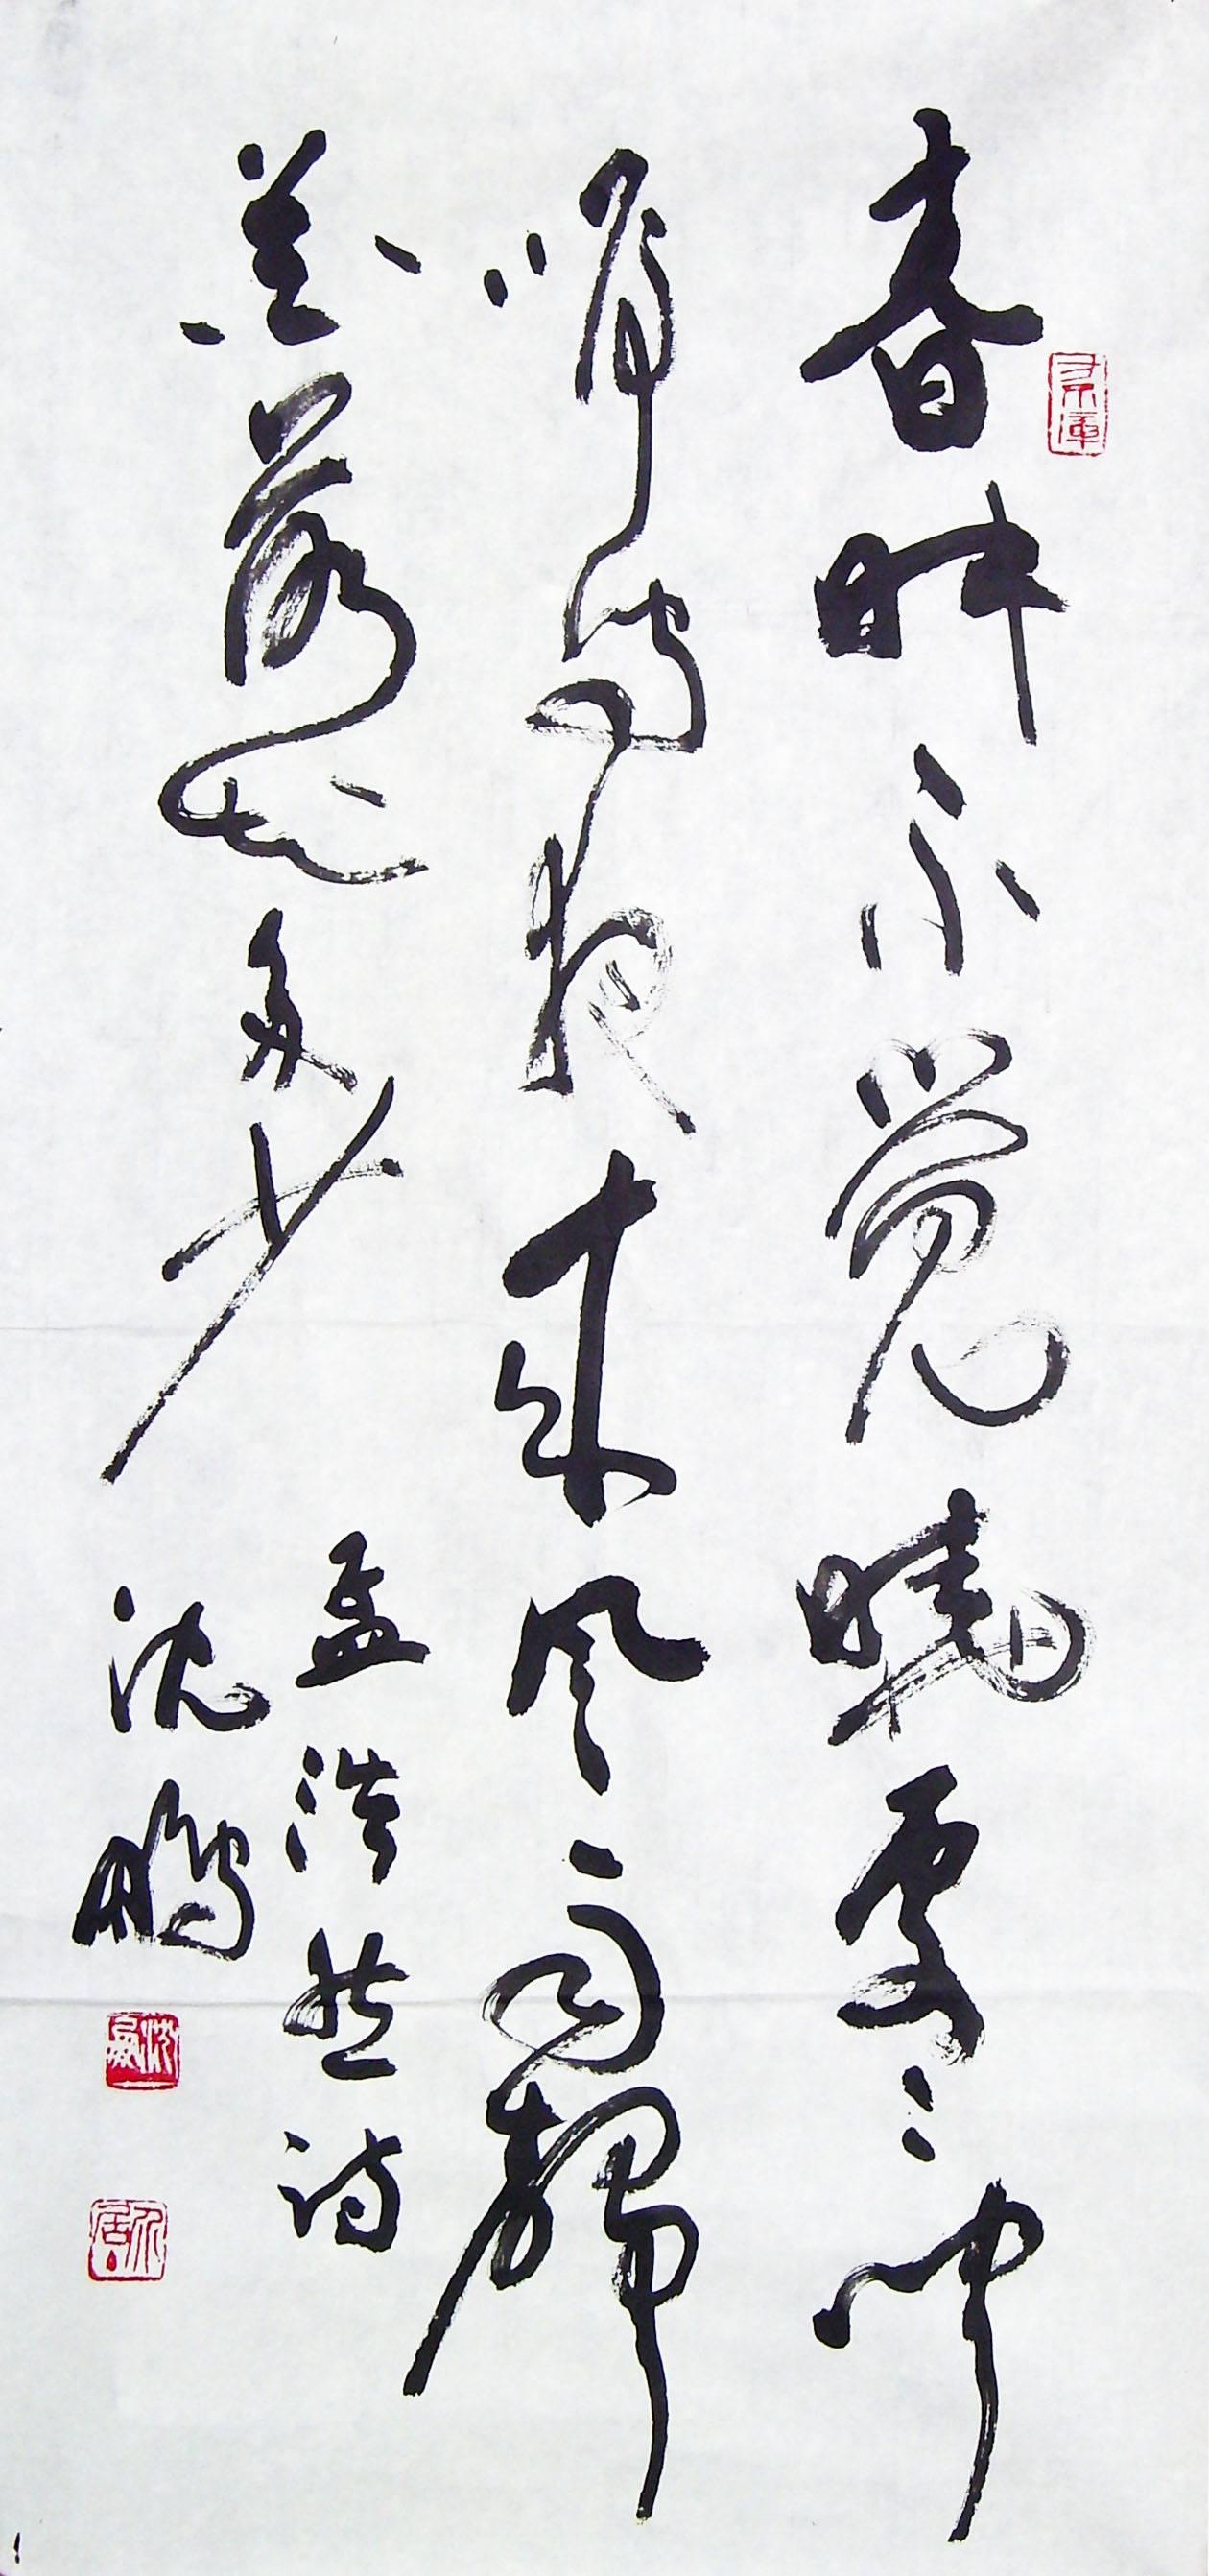 春眠不觉曉處々闻
啼鸟夜来风雨聲
花落知多少
孟浩然诗
沈鹏